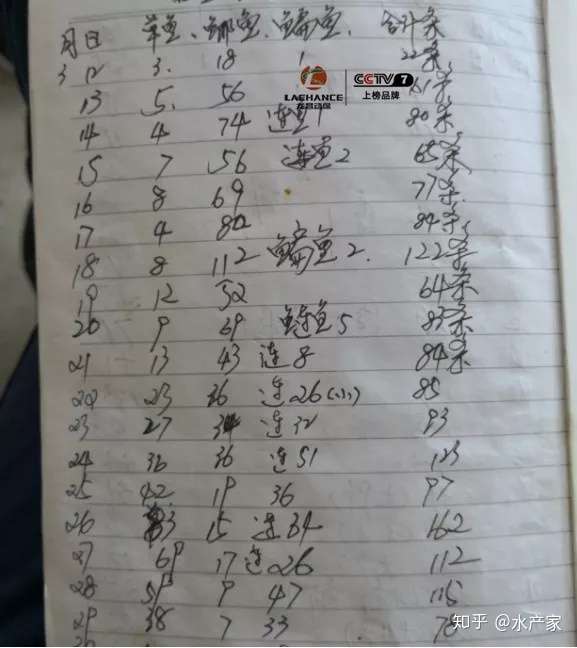 月日 草鱼、鲫鱼、鳊鱼、合计条
3 12 3. 18 1 22条
13 5. 56 61条
14 4 74 连鱼1 80条
15 7 56 连鱼2 65条
16 8 69 77条
17 4 80 84条
18 8 112 鳊鱼2. 122条
19 12 52 64条
20 9 69 鲢鱼5 83条
21 13 43 连8 84条
22 23 36 连26(小) 85
23 27 34 连32 93
24 36 36 连51 123
25 42 19 36 97
26 3 15 连34 162
27 69 17 连26 112
28 59 9 47 115
29 38 7 33 78
LACHANCE
CCTV 7
上榜品牌
知乎 @水产家